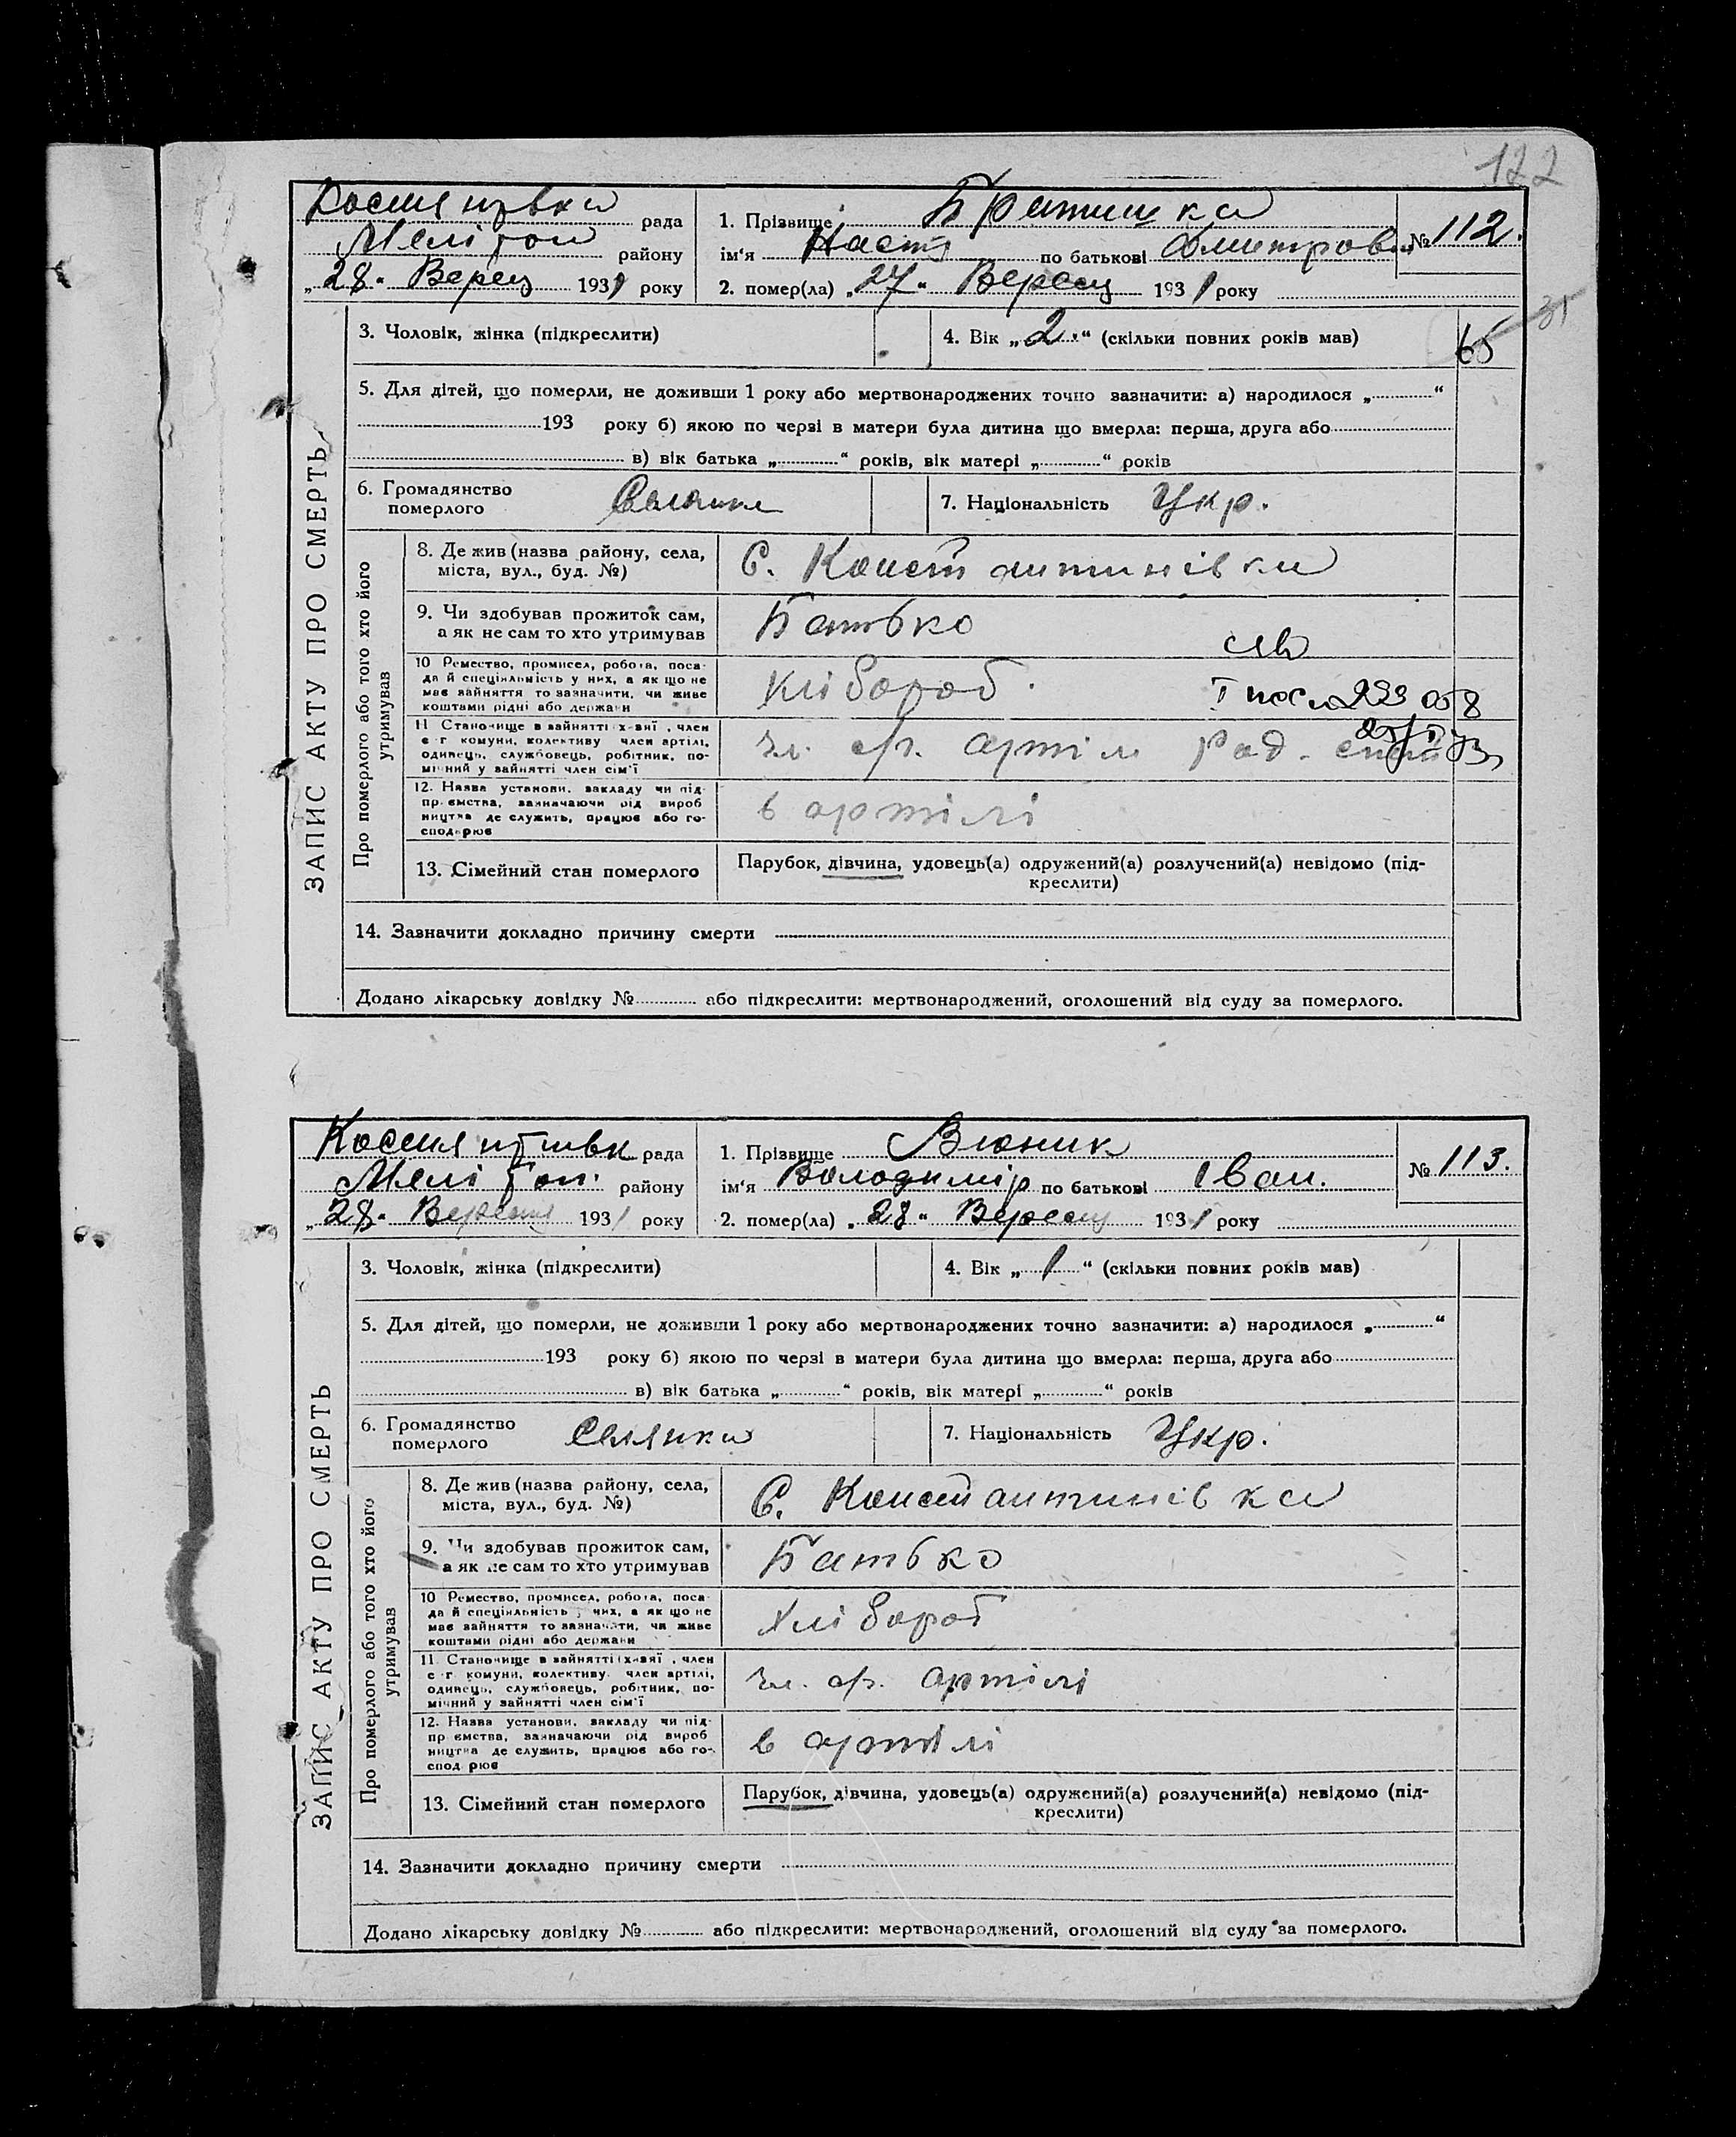 122
рада
Мелітоп
району
„28“ Верес 1931 року
1. Прізвище Братишка
ім‘я Настя по батькові Дмитров
№ 112.
2. помер(ла) „27“ Верес 1931 року
ЗАПИС АКТУ ПРО СМЕРТЬ
3. Чоловік, жінка (підкреслити)
4. Вік „2“ (скільки повних років мав)
65
35
5. Для дітей, що померли, не доживши 1 року або мертвонароджених точно зазначити: а) народилося „ “
193 року б) якою по черзі в матери була дитина що вмерла: перша, друга або
в) вік батька „ “ років, вік матері „ “ років
6. Громадянство
померлого
7. Національність Укр.
Про померлого або того хто його
утримував
8. Де жив (назва району, села,
міста, вул., буд. №)
С. Константинівка
9. Чи здобував прожиток сам,
а як не сам то хто утримував
Батько
10 Ремество, промисел, робота, поса-
да й спеціяльність у них, а як що не
має зайняття то зазначити, чи живе
коштами рідні або держави
Хлібороб.
11 Становище в зайнятті (х-вні, член
с-г. комуни, колективу член артілі,
одинець, службовець, робітник, по-
мічний у зайнятті член сім‘ї
чл. с/г. артіл
12. Назва установи, закладу чи під-
приємства, зазначаючи рід вироб
ництва де служить, працює або го-
сподарює
в артілі
13. Сімейний стан померлого
Парубок, дівчина, удовець(а) одружений(а) розлучений(а) невідомо (під-
креслити)
14. Зазначити докладно причину смерти
Додано лікарську довідку № або підкреслити: мертвонароджений, оголошений від суду за померлого.
рада
Мелітоп.
району
„28“ Вересня 1931 року
1. Прізвище Вюник
ім‘я Володимір по батькові Іван.
№ 113.
2. помер(ла) „28“ Вересн 1931 року
ЗАПИС АКТУ ПРО СМЕРТЬ
3. Чоловік, жінка (підкреслити)
4. Вік „1“ (скільки повних років мав)
5. Для дітей, що померли, не доживши 1 року або мертвонароджених точно зазначити: а) народилося „ “
193 року б) якою по черзі в матери була дитина що вмерла: перша, друга або
в) вік батька „ “ років, вік матері „ “ років
6. Громадянство
померлого
Селянка
7. Національність Укр.
Про померлого або того хто його
утримував
8. Де жив (назва району, села,
міста, вул., буд. №)
С. Константинівка
9. Чи здобував прожиток сам,
а як не сам то хто утримував
Батько
10 Ремество, промисел, робота, поса-
да й спеціяльність у них, а як що не
має зайняття то зазначити, чи живе
коштами рідні або держави
Хлібороб
11. Становище в зайнятті (х-вні, член
с-г комуни, колективу член артілі,
одинець, службовець, робітник, по-
мічний у зайнятті член сім‘ї
чл. с/г. артілі
12. Назва установи, закладу чи під-
приємства, зазначаючи рід вироб
ництва де служить, працює або го-
сподарює
в артілі
13. Сімейний стан померлого
Парубок, дівчина, удовець(а) одружений(а) розлучений(а) невідомо (під-
креслити)
14. Зазначити докладно причину смерти
Додано лікарську довідку № або підкреслити: мертвонароджений, оголошений від суду за померлого.